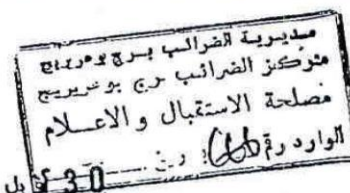 مديرية الضرائب برج بوعريريج
مركز الضرائب برج بوعريريج
مصلحة الاستقبال والاعلام
الوارد رقم
30